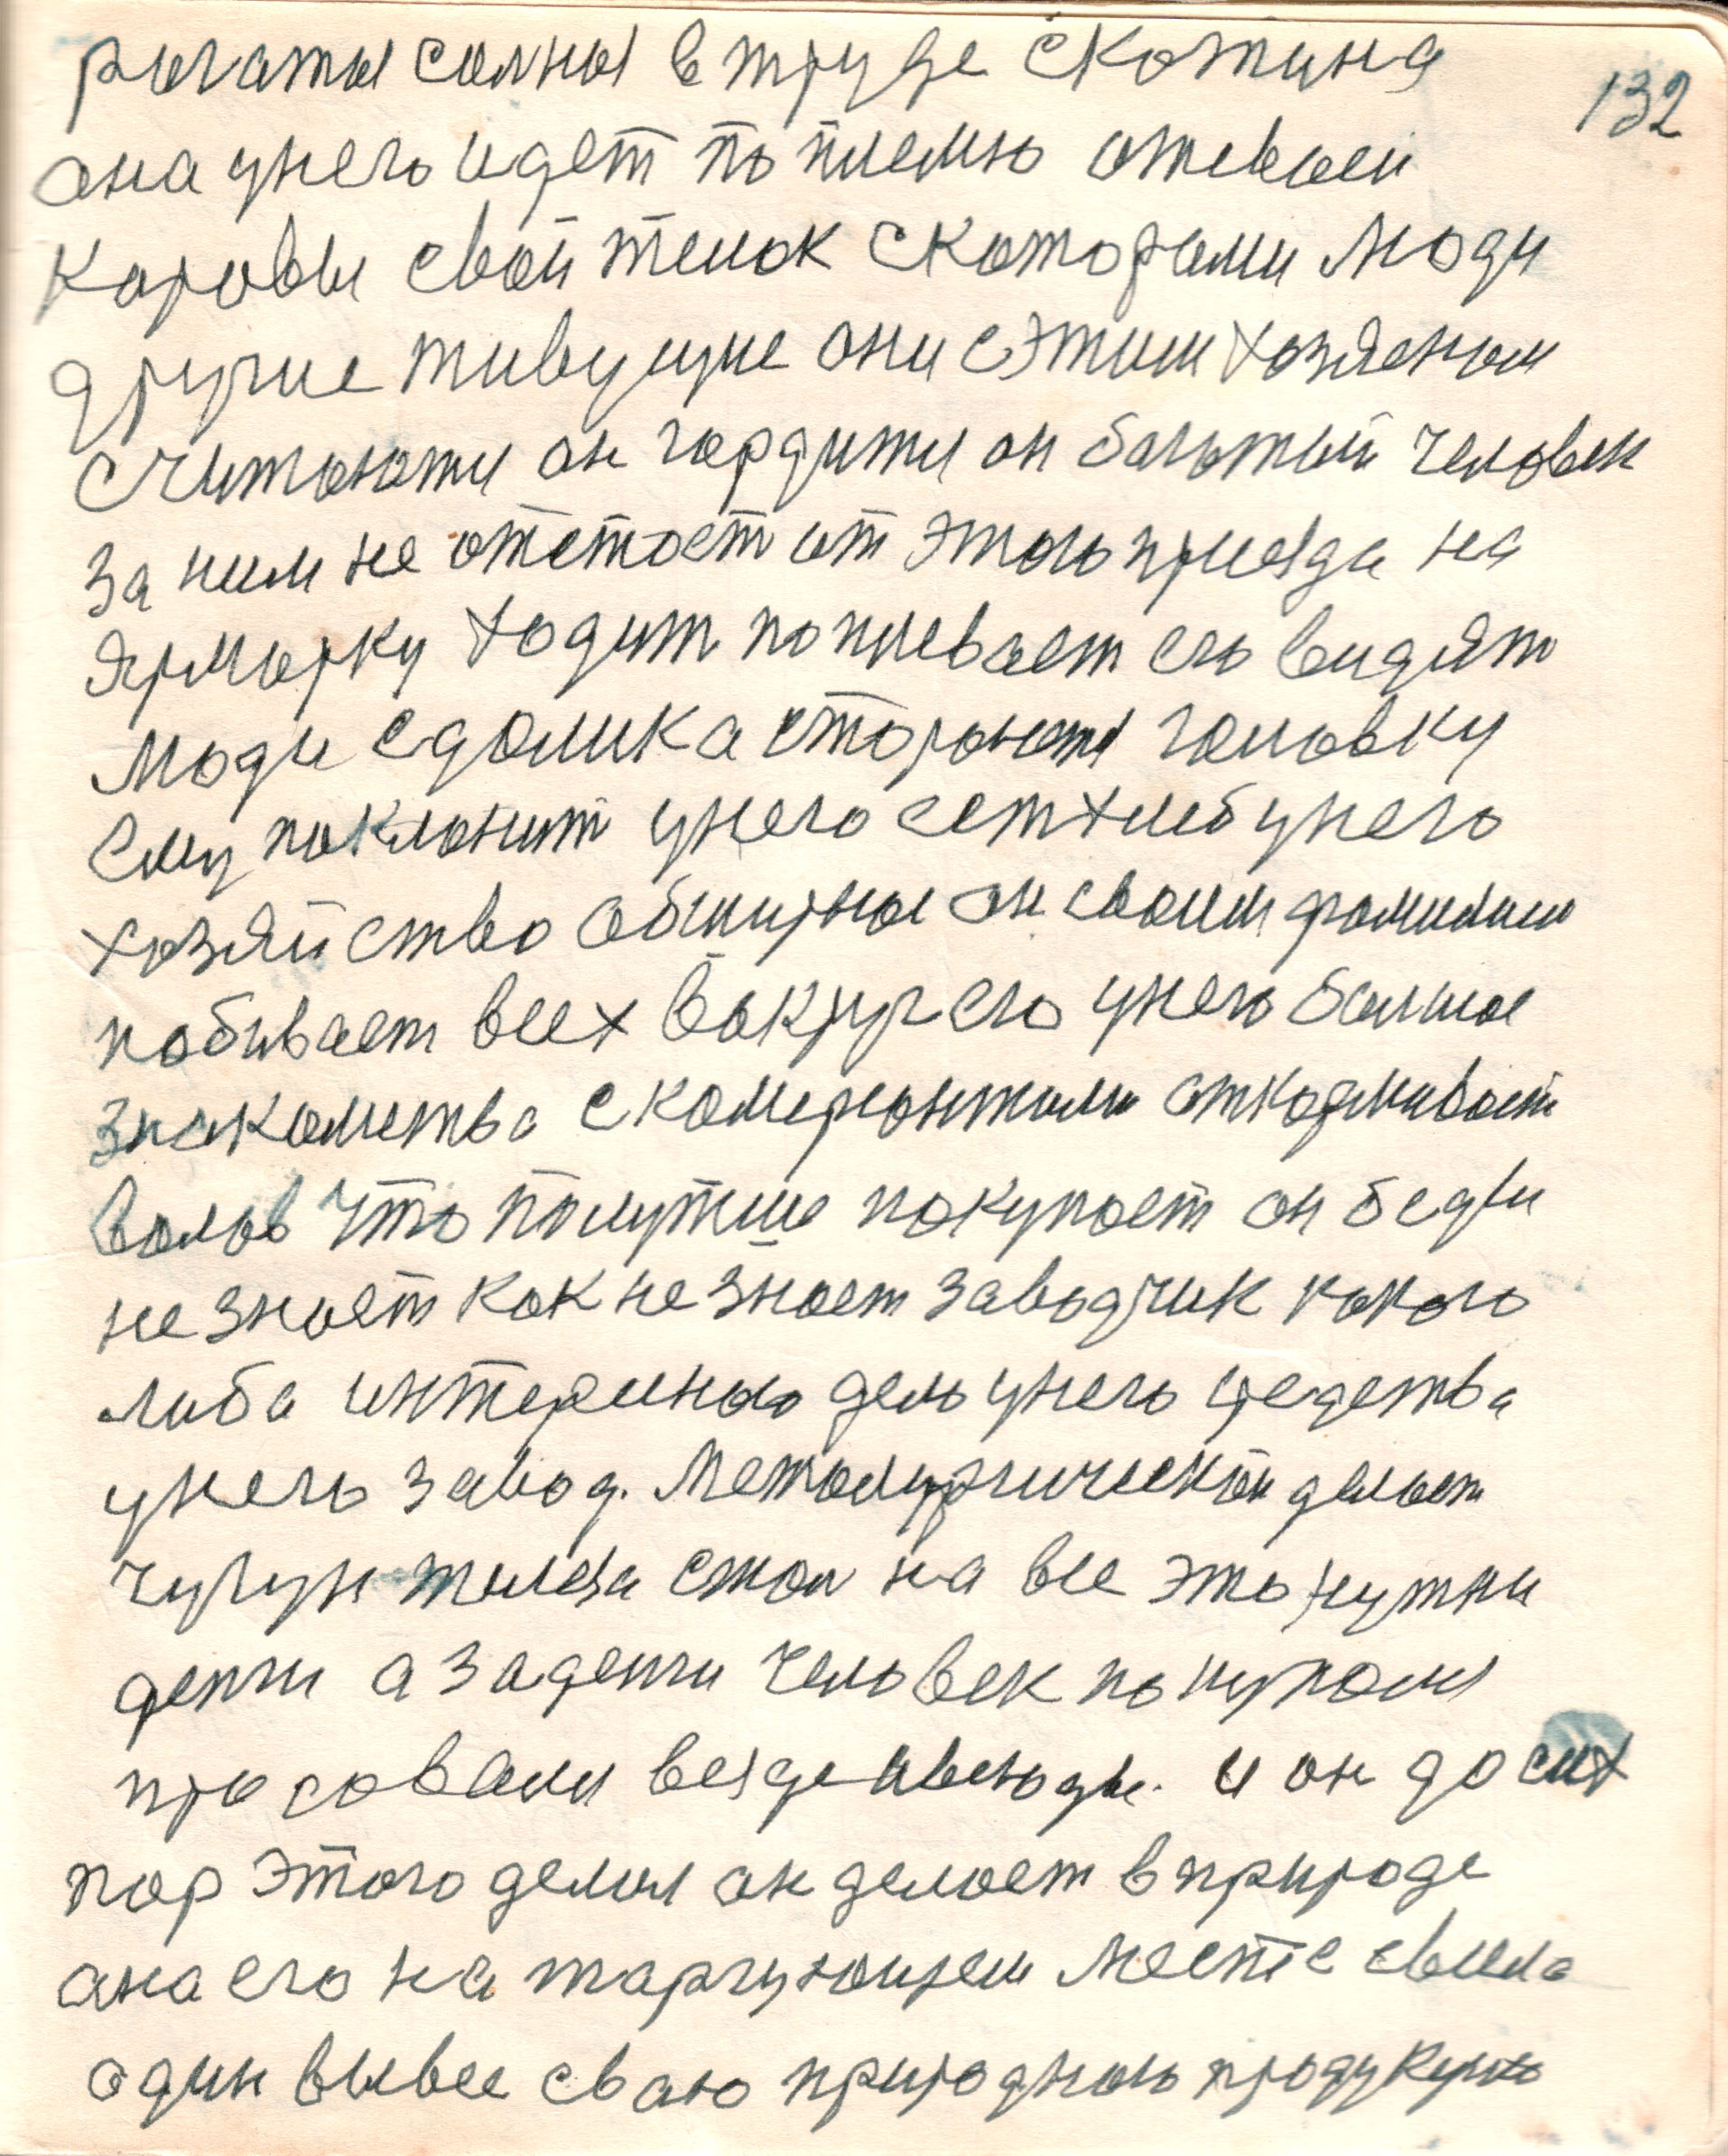 132
рогаты солны в труде скотина
она унего идет по племю отевоей
коровы свой телок скоторами люди
другие живущие они с этим хозяеном
считоются он гордится он богатый человек
за ним не отстоет от этого приезда на
ярморку ходит поплевает его видят
люди сдолика сторонятся головку
ему поклонит унего сетхлеб унего
хозяйство обширное он своим фомилием
побивает всех вокруг его унего болшое
знакомства скомерсонтами откормливоет
волов что полутше покупоет он беды
не знает как не знает заводчик какого
либа интересного дело унего средства
унего завод. Металургический делоет
чугун железа стол на все это нужны
денги а за денги человек покуполся
просовался везде ивсюды. и он до сих
пор этого делол он делоет в природе
она его на торгующем месте свела
один вывес сваю природного продукцию